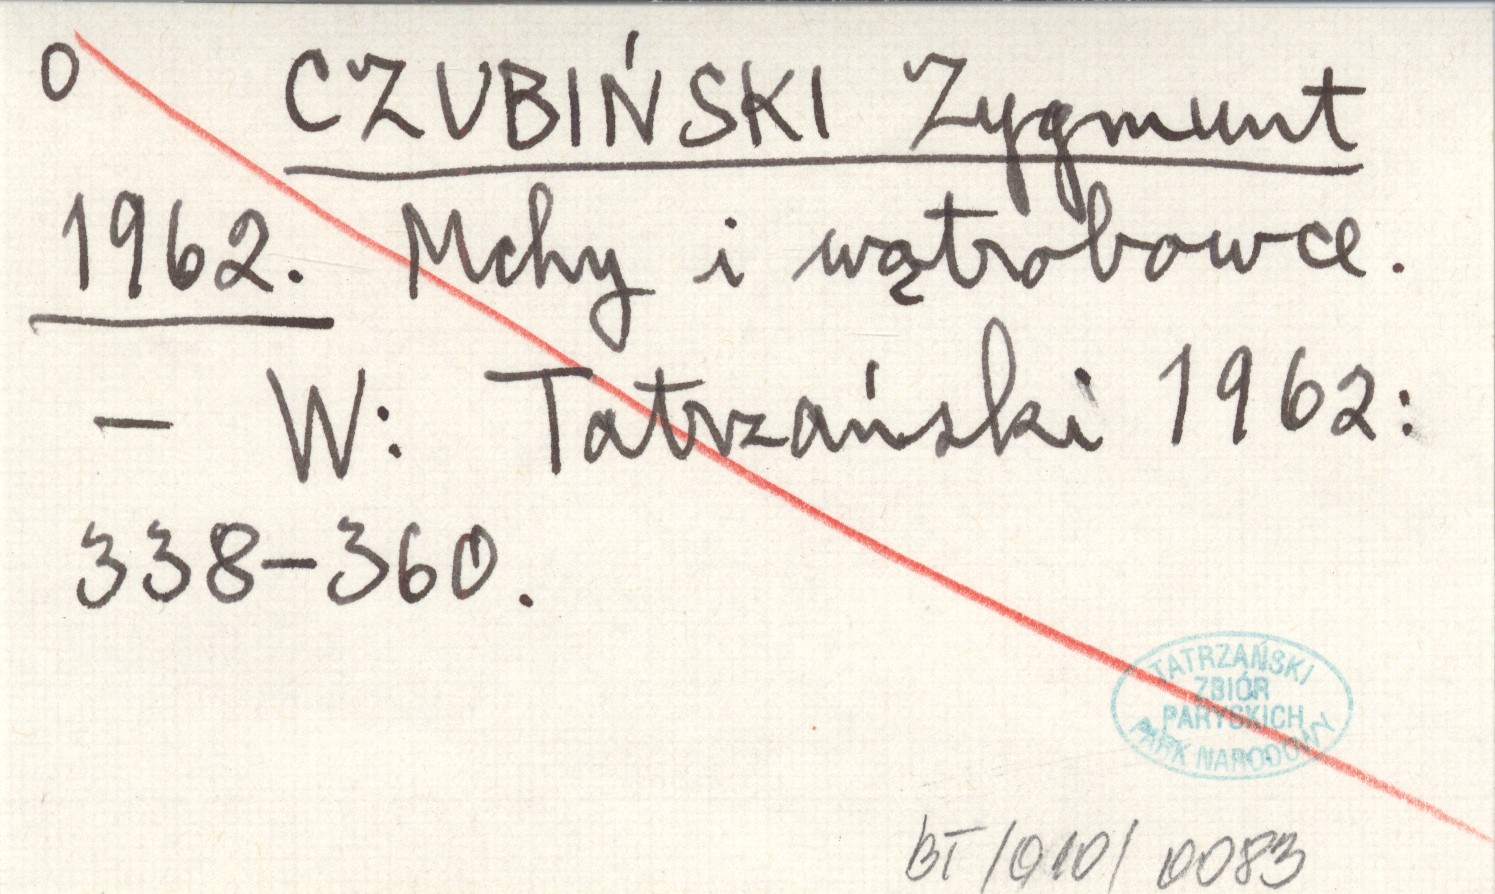 O CZUBIŃSKI Zygmunt
1962. Mchy i wątrobowce.
– W: Tatrzański 1962:
338–360.
TATRZAŃSKI
ZBIÓR
PARYSKICH
PARK NARODOWY
BT/010/0083